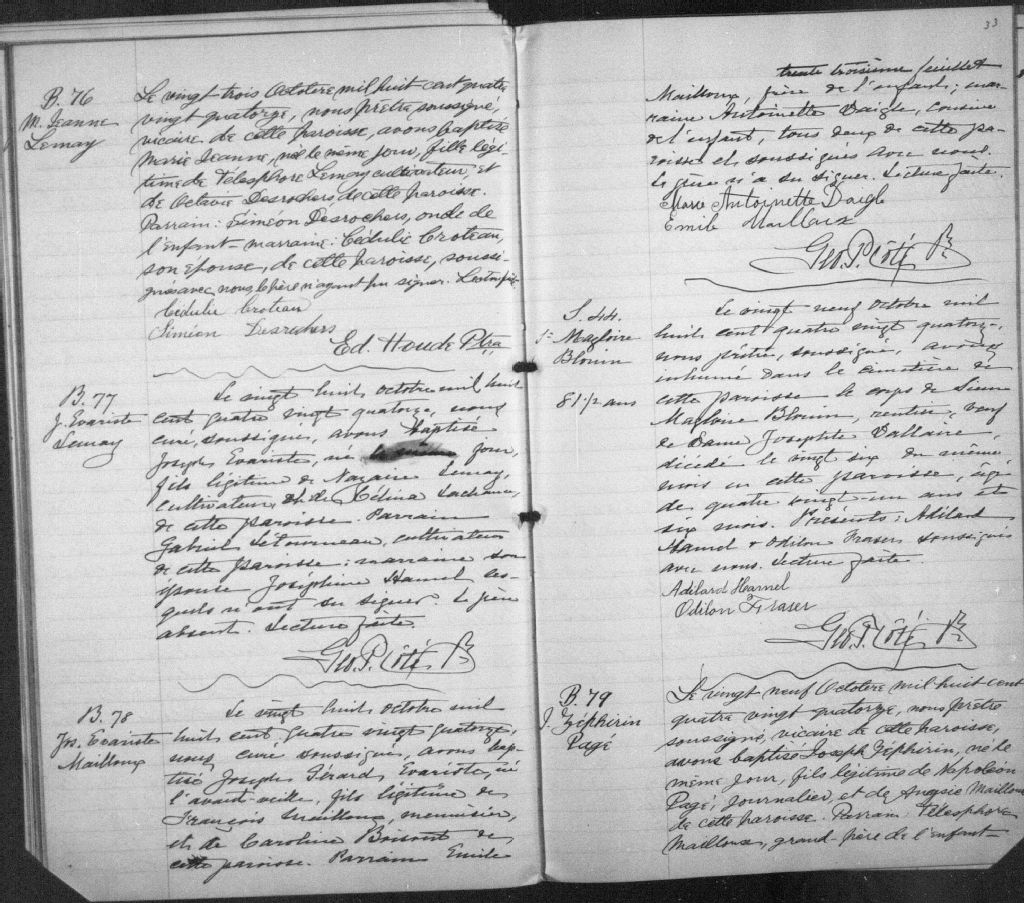 B. 76
M. Jeanne
Lemay
Le vingt trois Octobre mil huit cent quatre
vingt quatorze, nous prêtre soussigné,
vicaire de cette paroisse, avons baptisé
Marie Jeanne, née le même jour, fille légi-
time de Télesphore Lemay cultivateur, et
de Octavie Desrochers, de cette paroisse.
Parrain: Siméon Desrochers, oncle de
l'enfant marraine: Cédulie Croteau,
son épouse, de cette paroisse, soussi-
gnés avec nous, le père n'ayant pu signer. Lecture faite
Cédulie Croteau
Simeon Desrochers
Ed. Houde Ptre
B. 77
J. Evariste
Lemay
Le vingt huit octobre mil huit
cent quatre vingt quatorze, nous
curé, soussigné, avons baptisé
Joseph Evariste, né le même jour,
fils légitime de Nazaire Lemay,
cultivateur, et de Célina Lachance,
de cette paroisse. Parrain
Gabriel Létourneau, cultivateur
de cette paroisse; marraine son
épouse Joséphine Hamel les-
quels n'ont su signer. Le père
absent. Lecture faite.
Geo. P. Côté Ptre
B. 78
Jos. Evariste
Mailloux
Le vingt huit octobre mil
huit cent quatre vingt quatorze,
nous, curé soussigné, avons bap-
tisé Joseph Gérard Evariste, né
l'avant-veille, fils légitime de
François Mailloux, menuisier,
et de Caroline Boisont de
cette paroisse. Parrain Emile
33
trente troisième feuillet
Mailloux, frère de l'enfant; mar-
raine Antoinette Daigle, cousine
de l'enfant, tous deux de cette pa-
roisse et soussignés avec nous.
Le père n'a su signer. Lecture faite.
Marie Antoinette Daigle
Emile Mailloux
Geo. P. Côté Ptre
S. 44.
Magloire
Blouin
81 1/2 ans
Le vingt neuf octobre mil
huit cent quatre vingt quatorze,
nous prêtre, soussigné, avons
inhumé dans le cimetière de
cette paroisse le corps de Sieur
Magloire Blouin, rentier, veuf
de Dame Josephte Vallaire,
décédé le vingt six du même
mois en cette paroisse, âgé
de quatre vingt-un ans et
six mois. Présents: Adélard
Hamel & Odilon Fraser soussignés
avec nous. Lecture faite.
Adélard Hamel
Odilon Fraser
Geo. P. Côté Ptre
B. 79
J. Zéphirin
Pagé
Le vingt neuf Octobre mil huit cent
quatre vingt quatorze, nous prêtre
soussigné, vicaire de cette paroisse,
avons baptisé Joseph Zéphirin, né le
même jour, fils légitime de Napoléon
Pagé, journalier, et de Mailloux
de cette paroisse. Parrain: Télesphore
Mailloux, grand-père de l'enfant